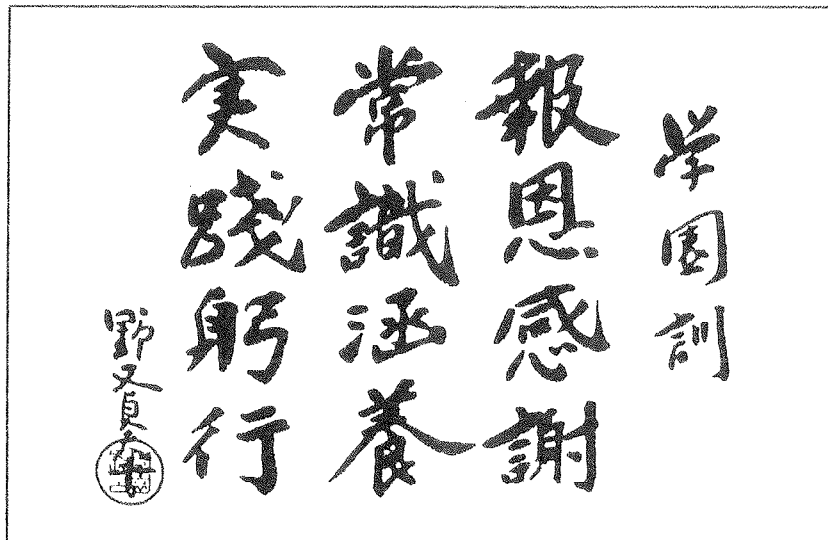 学園訓
報恩感謝
常識涵養
実践躬行
野又貞夫